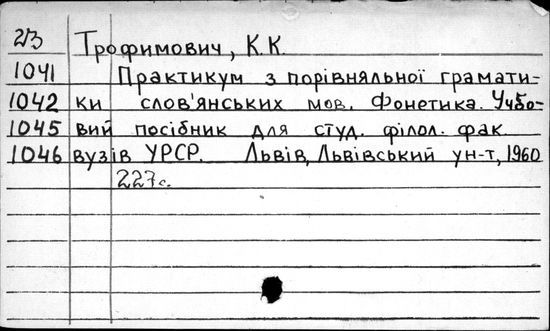 2/3 Трофимович, К.К.
1041 Практикум з порівняльної грамати-
1042 ки слов'янських мов. Фонетика. Учбо-
1045 вий посібник для студ. філол. фак.
1046 вузів УРСР. Львів, Львівський ун-т, 1960
227с.